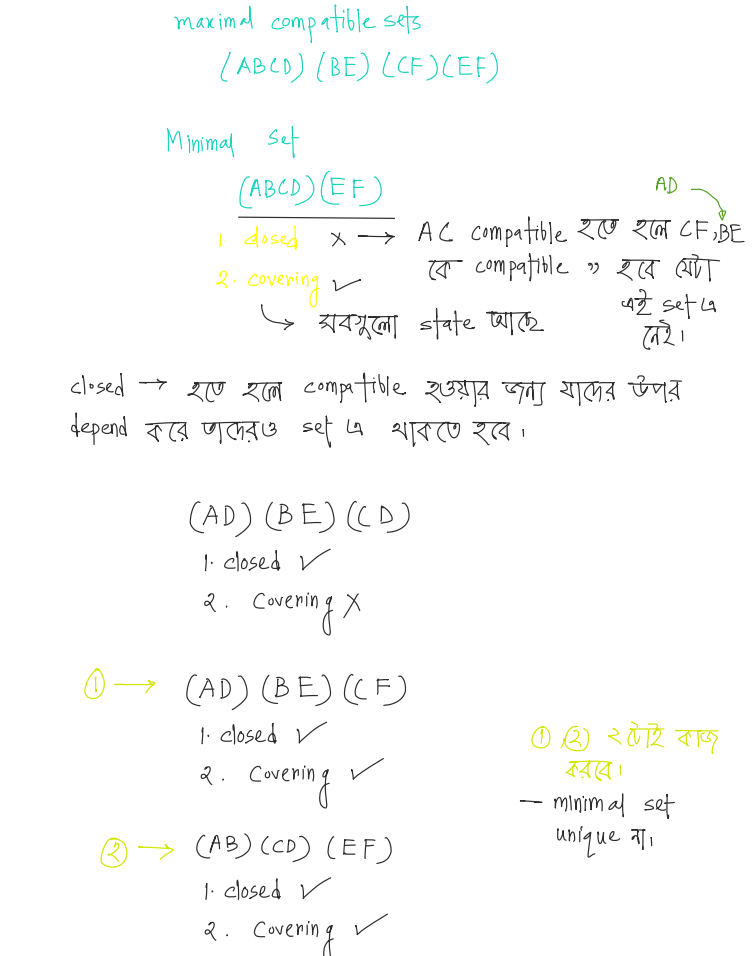 maximal compatible sets
(ABCD) (BE) (CF) (EF)
Minimal set
(ABCD) (EF)
AD
1. closed × → AC compatible হতে হলে CF, BE
2. covering ✓ কে compatible " হবে যেটা
এই set এ
নেই।
↳ সবগুলো state আছে
closed → হতে হলে compatible হওয়ার জন্য যাদের উপর
depend করে তাদেরও set এ থাকতে হবে।
(AD) (BE) (CD)
1. closed ✓
২. Covering ×
① → (AD) (BE) (CF)
1. closed ✓
২. Covering ✓
①, ② ২টোই কাজ
করবে।
— minimal set
unique না।
② → (AB) (CD) (EF)
1. closed ✓
২. Covering ✓